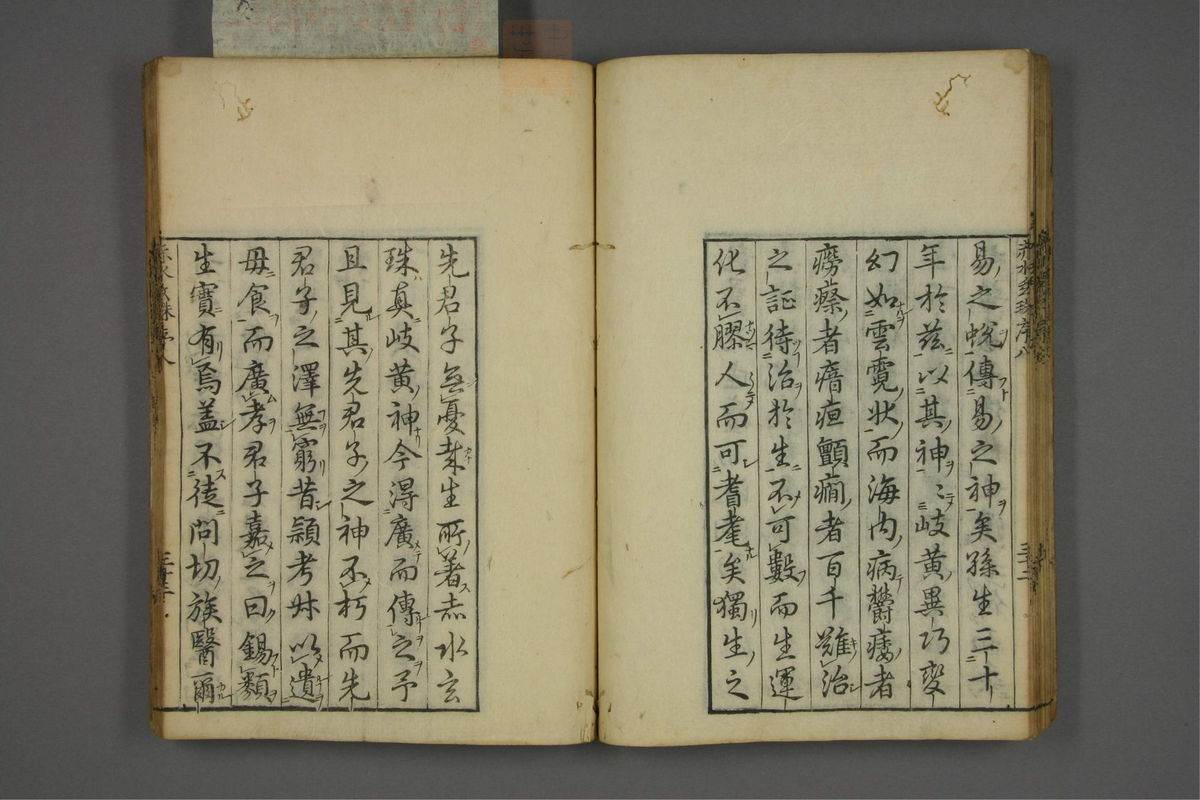 易之蛻傳易之神矣孫生三十
年於茲以其神〻岐黃異巧變
幻如雲霓狀而海內病欝痿者
癆瘵者瘖疸顫癇者百千難治
之証待治於生不可數而生運
化不膠人而可耆耄矣獨生之
先君子無憂
生所著赤水玄
珠真岐黃神今得廣而傳之予
且見其先君子之神不朽而先
君子之澤無窮昔頴考叔以遺
母食而廣孝君子嘉之曰錫類
生實有焉盖不徒問切族醫爾